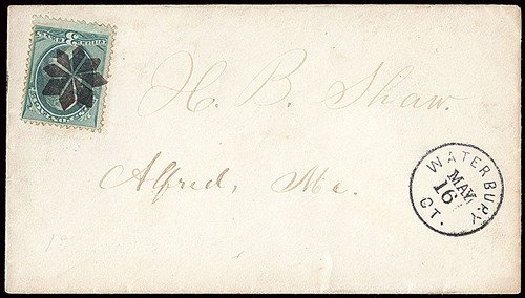 H. B. Shaw.
Alfred, Me.
WATERBURY
MAY
16
CT.